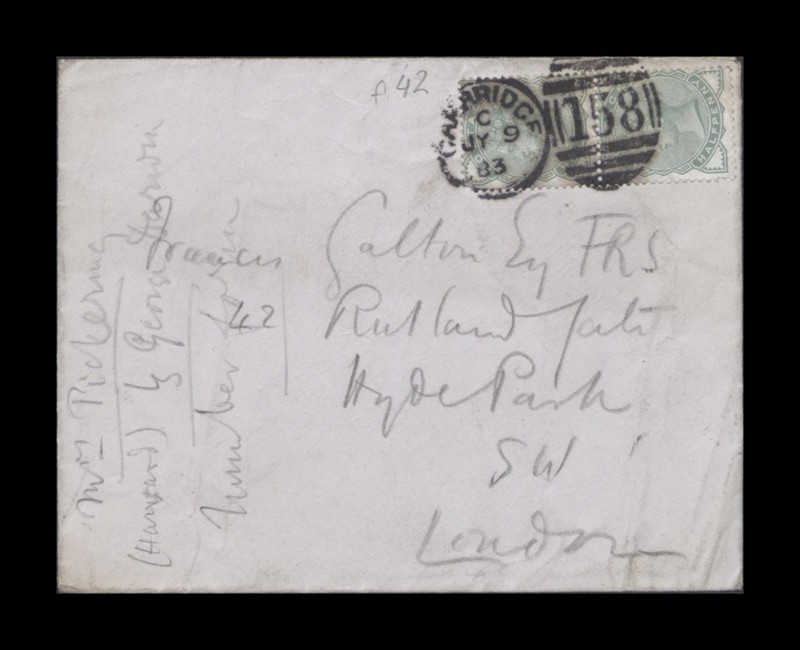 f. 42
CAMBRIDGE
C
JY 9
83
158
HALFPENNY
Francis Galton Esq FRS
42 Rutland Gate
Hyde Park
SW
London
Mrs Pickering
(Harvard) by George Darwin
Number form